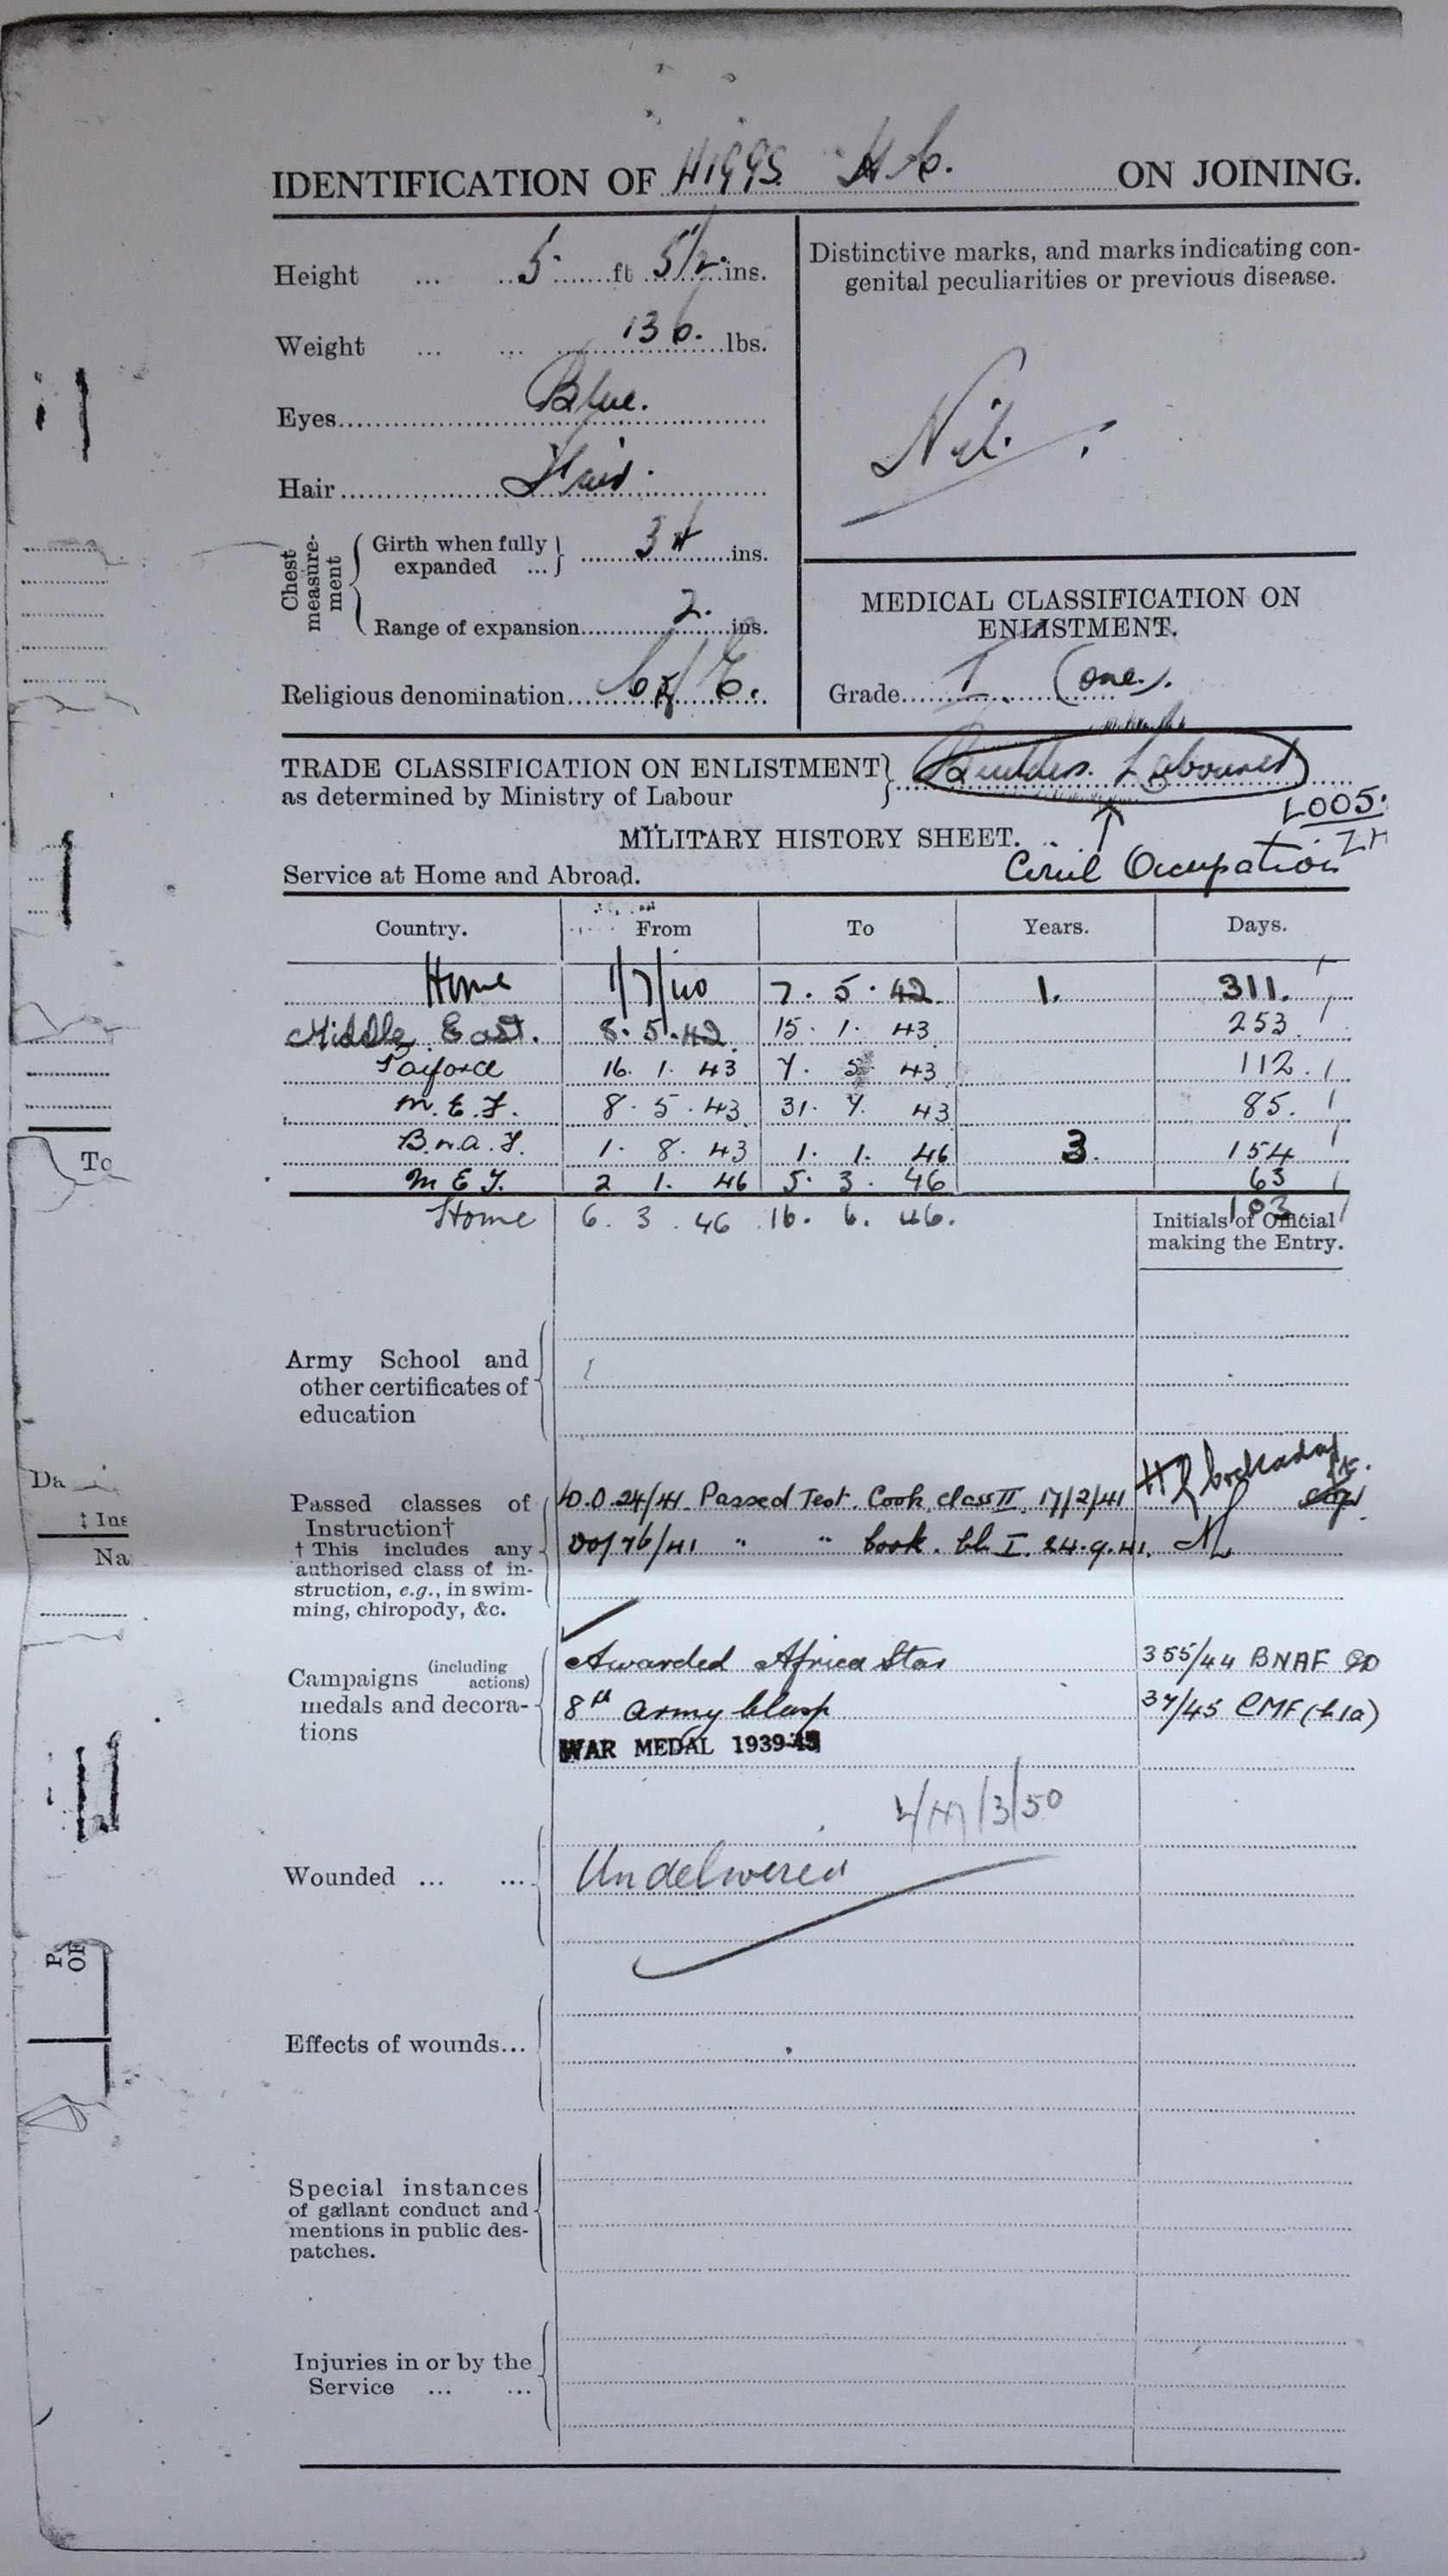 IDENTIFICATION OF HIGGS. H.C. ON JOINING.
Height ... ... 5 ft 5½ ins.
Weight ... ... 136. lbs.
Eyes Blue.
Hair Fair.
Chest measure-ment
Girth when fully expanded ... 34 ins.
Range of expansion 2. ins.
Religious denomination C of E.
Distinctive marks, and marks indicating con-
genital peculiarities or previous disease.
Nil.
MEDICAL CLASSIFICATION ON
ENLISTMENT.
Grade I. (one).
TRADE CLASSIFICATION ON ENLISTMENT Builders. Labourer
as determined by Ministry of Labour
L005.
MILITARY HISTORY SHEET.
Service at Home and Abroad. Civil Occupation
Country. From To Years. Days.
Home 1/7/40 7. 5. 42 1. 311.
Middle East. 8. 5. 42 15. 1. 43 253
Paiforce 16. 1. 43 7. 5. 43 112.
M.E.F. 8. 5. 43 31. 7. 43 85.
B.N.A.F. 1. 8. 43 1. 1. 46 3. 154
M E F. 2 1. 46 5. 3. 46 63
Home 6. 3. 46 16. 6. 46. 103
Initials of Official
making the Entry.
Army School and
other certificates of
education
Passed classes of
Instruction†
† This includes any
authorised class of in-
struction, e.g., in swim-
ming, chiropody, &c.
D.O. 24/41. Passed Test. Cook class II 17/2/41
DO/76/41 " " Cook. Cl. I. 24.9.41.
Campaigns (including actions)
medals and decora-
tions
Awarded Africa Star 355/44 BNAF
8th Army Clasp 37/45 CMF
WAR MEDAL 1939-45
/3/50
Wounded ... ... Undelivered
Effects of wounds...
Special instances
of gallant conduct and
mentions in public des-
patches.
Injuries in or by the
Service ... ...
To
Da
‡ Ins
Na
P
OF